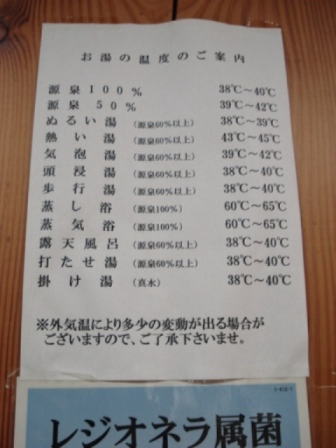 お湯の温度のご案内
源泉100% 38℃～40℃
源泉50% 39℃～42℃
ぬるい湯 (源泉60%以上) 38℃～39℃
熱い湯 (源泉60%以上) 43℃～45℃
気泡湯 (源泉60%以上) 39℃～42℃
頭浸湯 (源泉60%以上) 38℃～40℃
歩行湯 (源泉60%以上) 38℃～40℃
蒸し浴 (源泉100%) 60℃～65℃
蒸気浴 (源泉100%) 60℃～65℃
露天風呂 (源泉60%以上) 38℃～40℃
打たせ湯 (源泉60%以上) 38℃～40℃
掛け湯 (真水) 38℃～40℃
※外気温により多少の変動が出る場合が
ございますので、ご了承下さいませ。
レジオネラ属菌